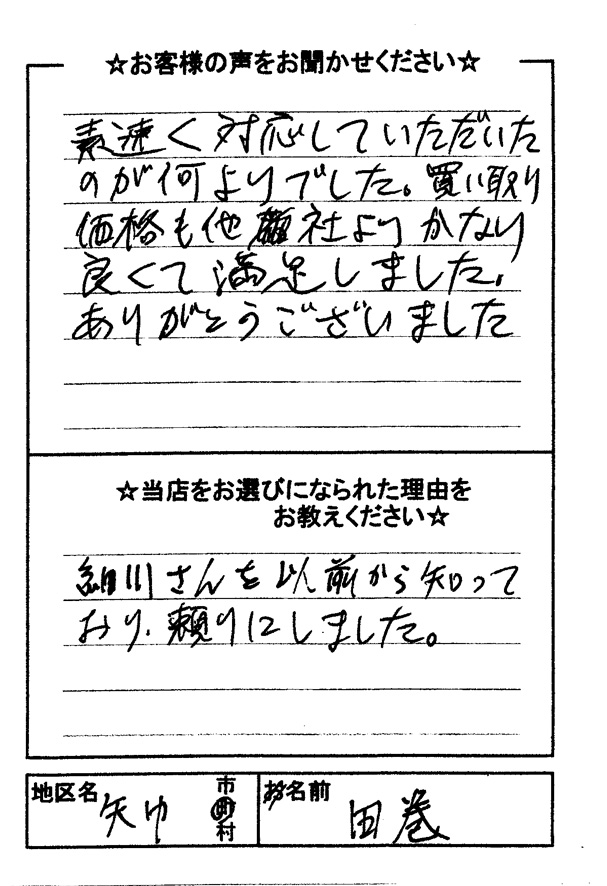 ☆お客様の声をお聞かせください☆
素速く対応していただいた
のが何よりでした。買い取り
価格も他社よりかなり
良くて満足しました。
ありがとうございました
☆当店をお選びになられた理由を
お教えください☆
細川さんを以前から知って
おり、頼りにしました。
地区名 矢巾 市町村
お名前 田巻